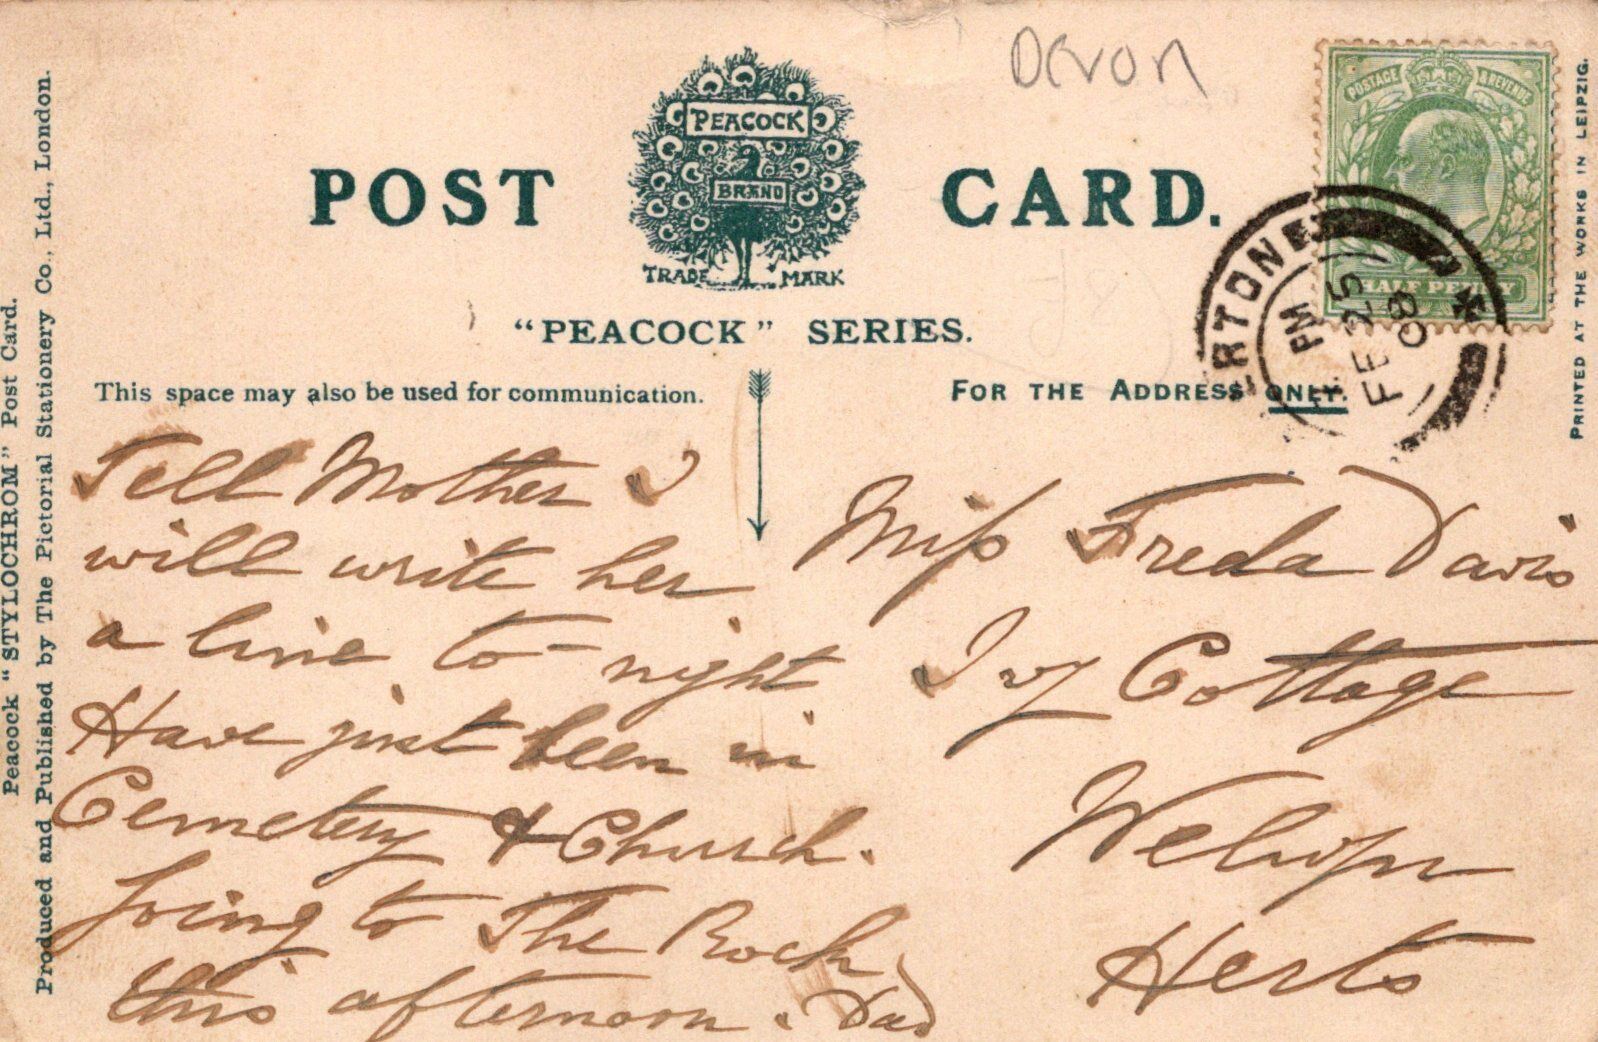 Devon
POSTAGE & REVENUE
HALF PENNY
PEACOCK
BRAND
TRADE MARK
POST CARD.
"PEACOCK" SERIES.
This space may also be used for communication.
FOR THE ADDRESS ONLY.
PM
FE 25
08
Tell Mother I
will write her
a line to-night
Have just been in
Cemetery & Church.
Going to The Rock
this afternoon. Dad
Miss Freda Davis
Ivy Cottage
Welwyn
Herts
Peacock "STYLOCHROM" Post Card.
Produced and Published by The Pictorial Stationery Co., Ltd., London.
PRINTED AT THE WORKS IN LEIPZIG.